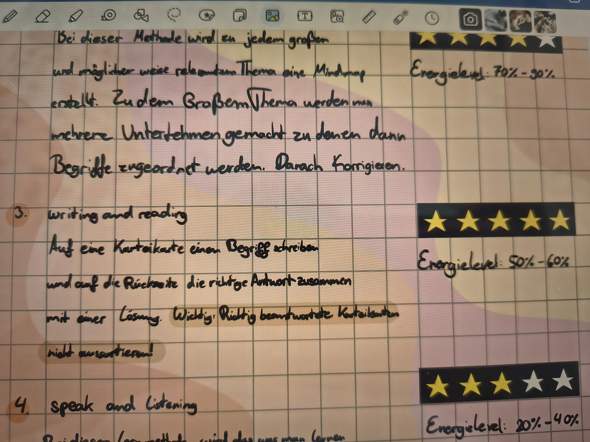 Bei dieser Methode wird zu jedem großen
und möglicher weise relevantem Thema eine Mindmap
erstellt. Zu dem Großem Thema werden nun
mehrere Unterthemen gemacht zu denen dann
Begriffe zugeordnet werden. Danach Korrigieren.
Energielevel: 70%-90%
3. writing and reading
Auf eine Karteikarte einen Begriff schreiben
und auf die Rückseite die richtige Antwort zusammen
mit einer Lösung. Wichtig: Richtig beantwortete Karteikarten
nicht aussortieren!
Energielevel: 50%-60%
4. speak and listening
Energielevel: 20%-40%
Bei dieser Lernmethode wird das was man lernen